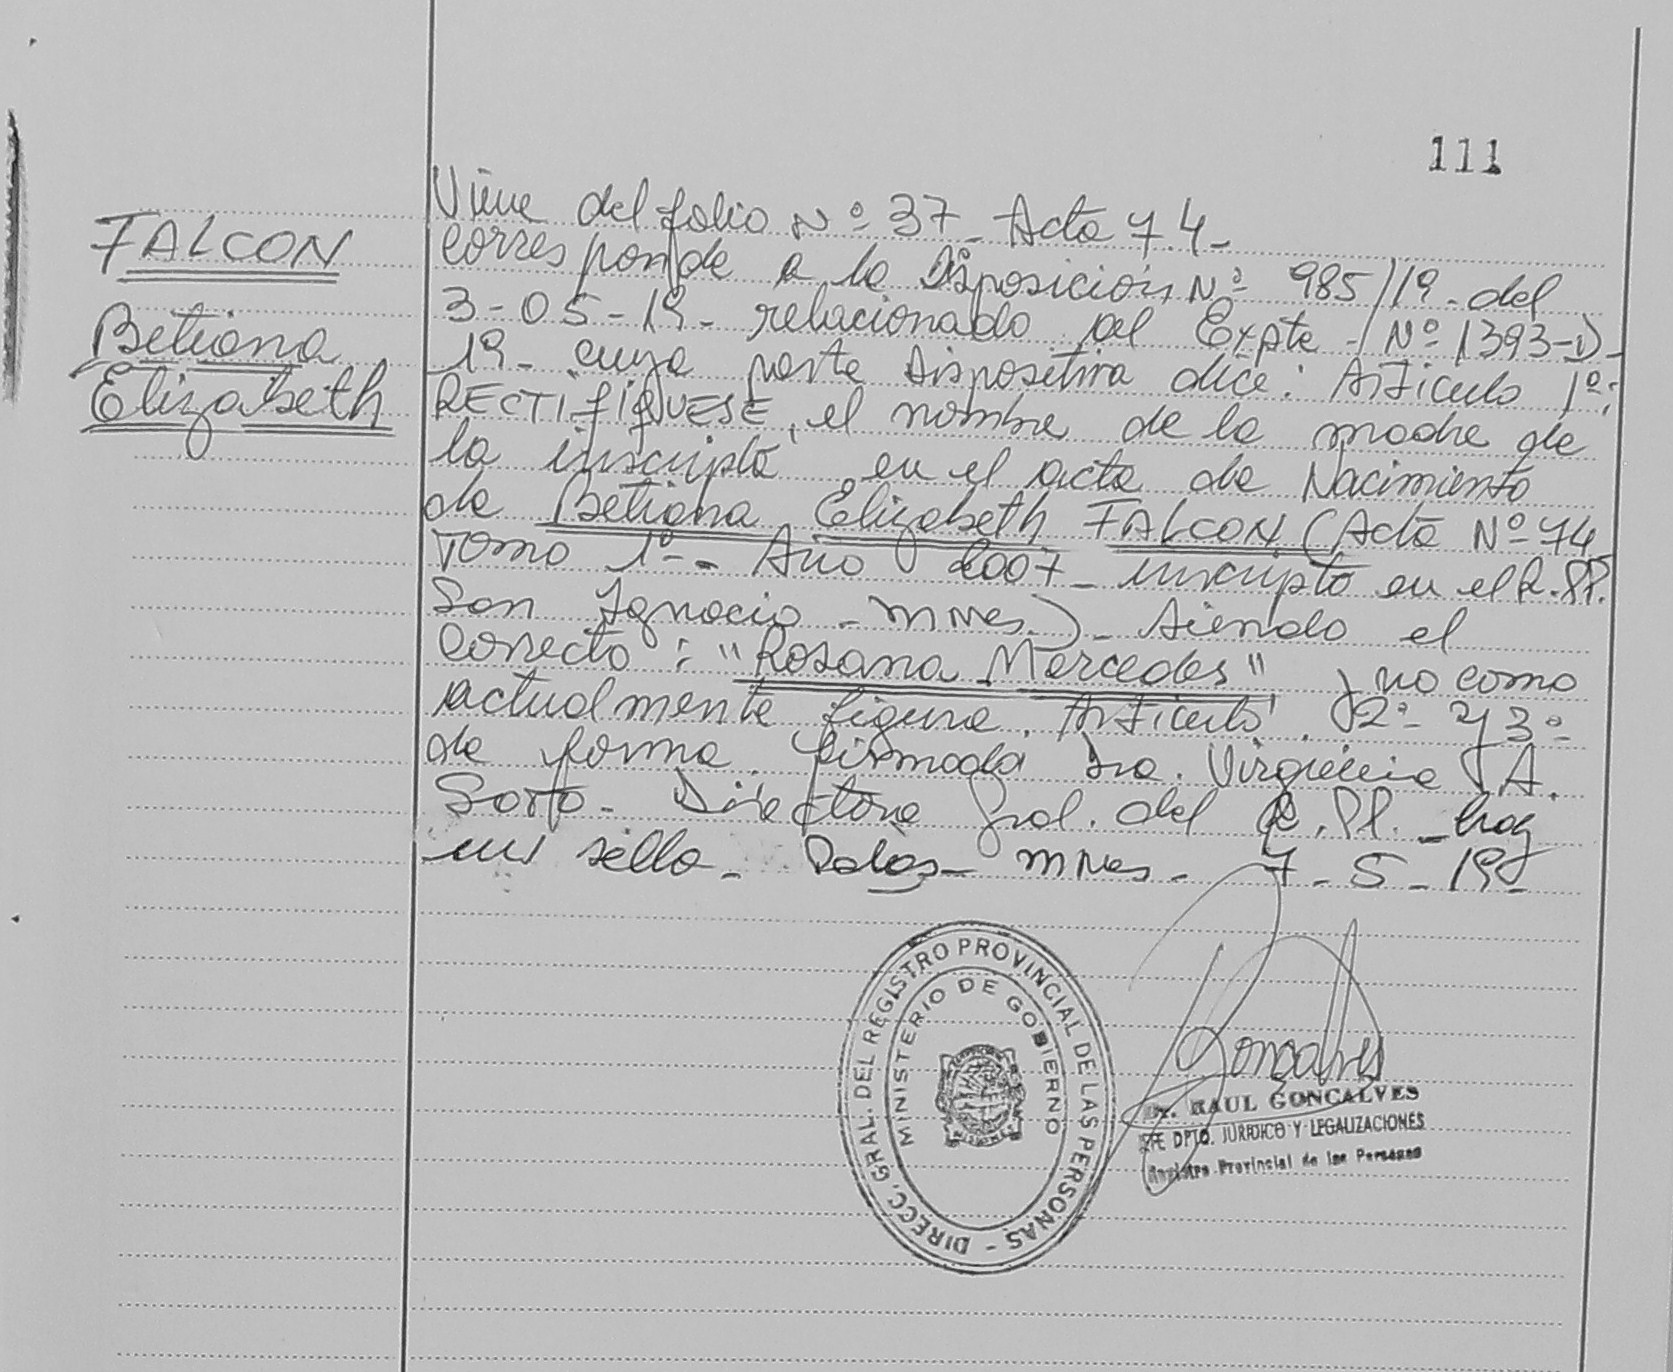 111
FALCON
Betiana
Elizabeth
Viene del folio Nº 37- Acta 74-
Corresponde a la Disposición Nº 985/19- del
3-05-19- relacionado al Expte- Nº 1393-D-
19- cuya parte dispositiva dice: Artículo 1º:
RECTIFIQUESE, el nombre de la madre de
la inscripta en el acta de Nacimiento
de Betiana Elizabeth FALCON (Acta Nº 74
Tomo 1º- Año 2007- inscripta en el R.PP.
San Ignacio - Mnes.)- siendo el
correcto: "Rosana Mercedes" y no como
actualmente figura. Artículo 2º- y 3º
de forma. Firmada Dra. Virginia A.
Directora Gral. del R.PP. - hay
un sello- Pdas- Mnes- 7-5-19-
DIRECC. GRAL. DEL REGISTRO PROVINCIAL DE LAS PERSONAS -
MINISTERIO DE GOBIERNO
Goncalves
Dr. RAUL GONCALVES
JEFE DPTO. JURIDICO Y LEGALIZACIONES
Registro Provincial de las Personas